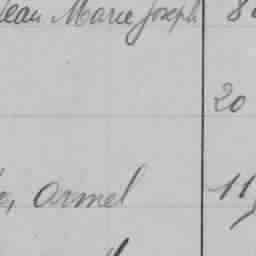 Jean Marie Joseph 8
20
, Armel 11